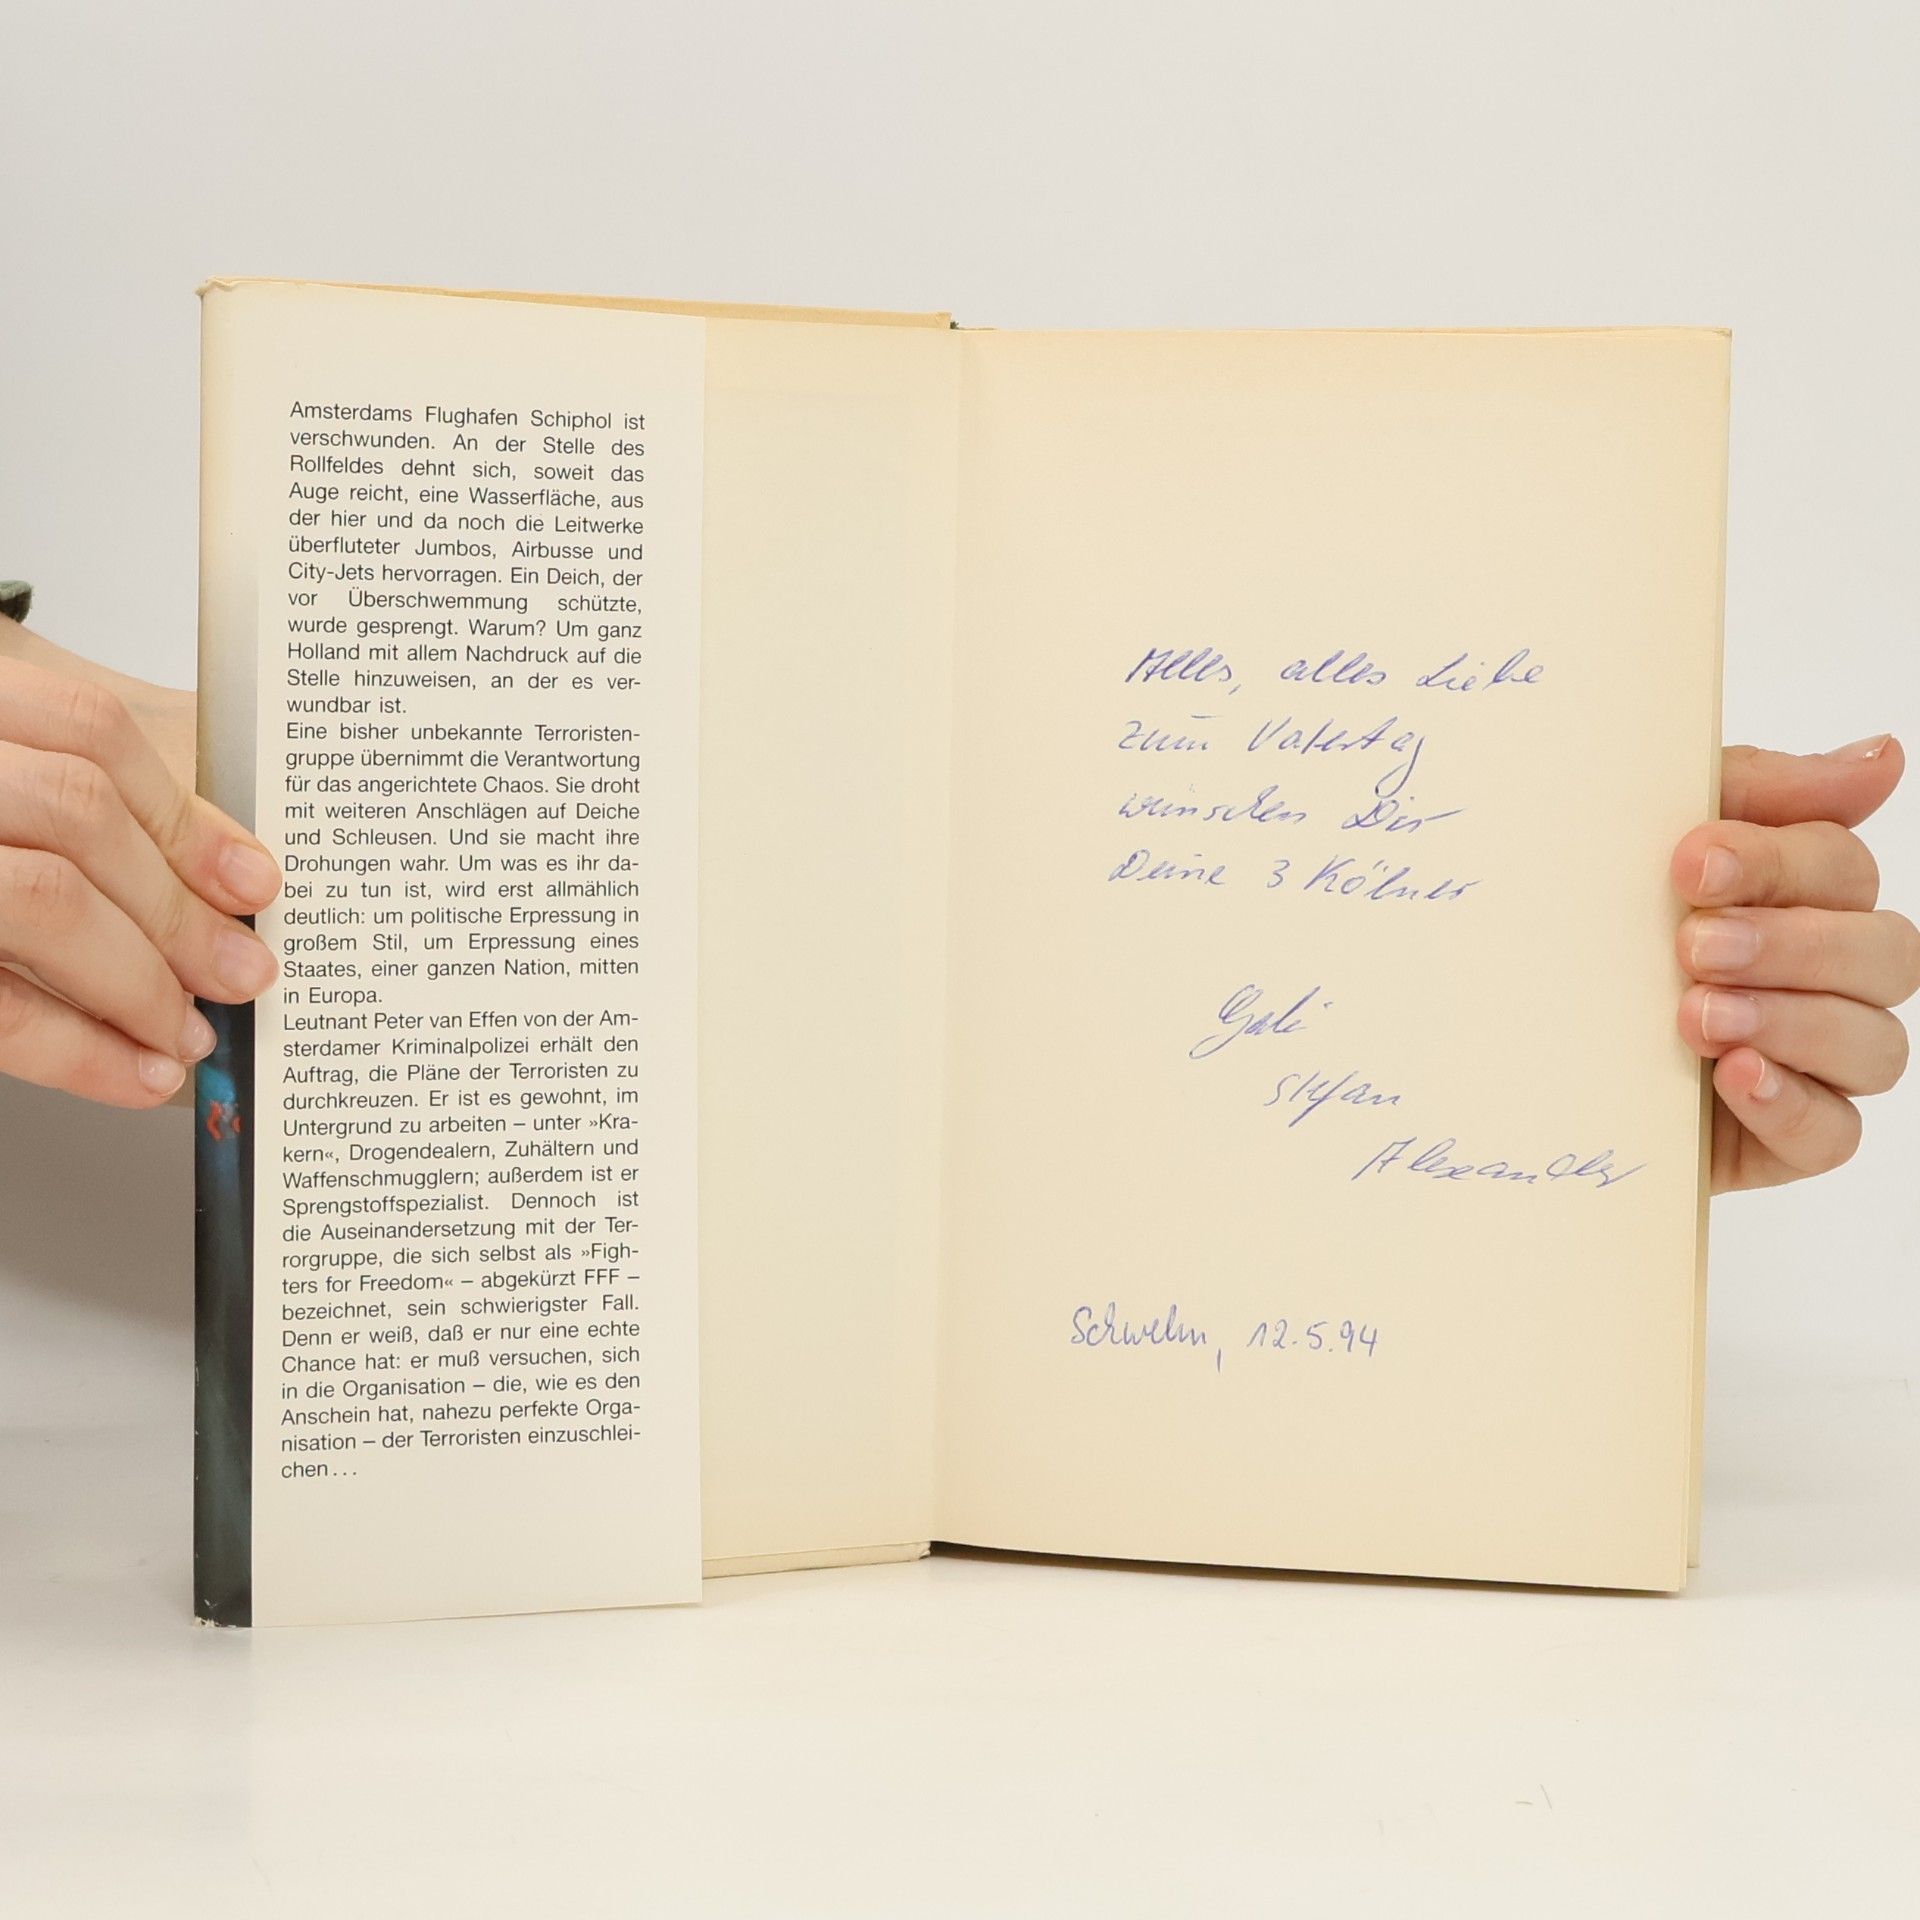 Amsterdams Flughafen Schiphol ist
verschwunden. An der Stelle des
Rollfeldes dehnt sich, soweit das
Auge reicht, eine Wasserfläche, aus
der hier und da noch die Leitwerke
überfluteter Jumbos, Airbusse und
City-Jets hervorragen. Ein Deich, der
vor Überschwemmung schützte,
wurde gesprengt. Warum? Um ganz
Holland mit allem Nachdruck auf die
Stelle hinzuweisen, an der es ver-
wundbar ist.
Eine bisher unbekannte Terroristen-
gruppe übernimmt die Verantwortung
für das angerichtete Chaos. Sie droht
mit weiteren Anschlägen auf Deiche
und Schleusen. Und sie macht ihre
Drohungen wahr. Um was es ihr da-
bei zu tun ist, wird erst allmählich
deutlich: um politische Erpressung in
großem Stil, um Erpressung eines
Staates, einer ganzen Nation, mitten
in Europa.
Leutnant Peter van Effen von der Am-
sterdamer Kriminalpolizei erhält den
Auftrag, die Pläne der Terroristen zu
durchkreuzen. Er ist es gewohnt, im
Untergrund zu arbeiten – unter »Kra-
kern«, Drogendealern, Zuhältern und
Waffenschmugglern; außerdem ist er
Sprengstoffspezialist. Dennoch ist
die Auseinandersetzung mit der Ter-
rorgruppe, die sich selbst als »Figh-
ters for Freedom« – abgekürzt FFF –
bezeichnet, sein schwierigster Fall.
Denn er weiß, daß er nur eine echte
Chance hat: er muß versuchen, sich
in die Organisation – die, wie es den
Anschein hat, nahezu perfekte Orga-
nisation – der Terroristen einzuschlei-
chen...
Alles, alles Liebe
zum Vatertag
wünschen Dir
Deine 3 Kölner
Stefan
Alexander
Schwelm, 12.5.94